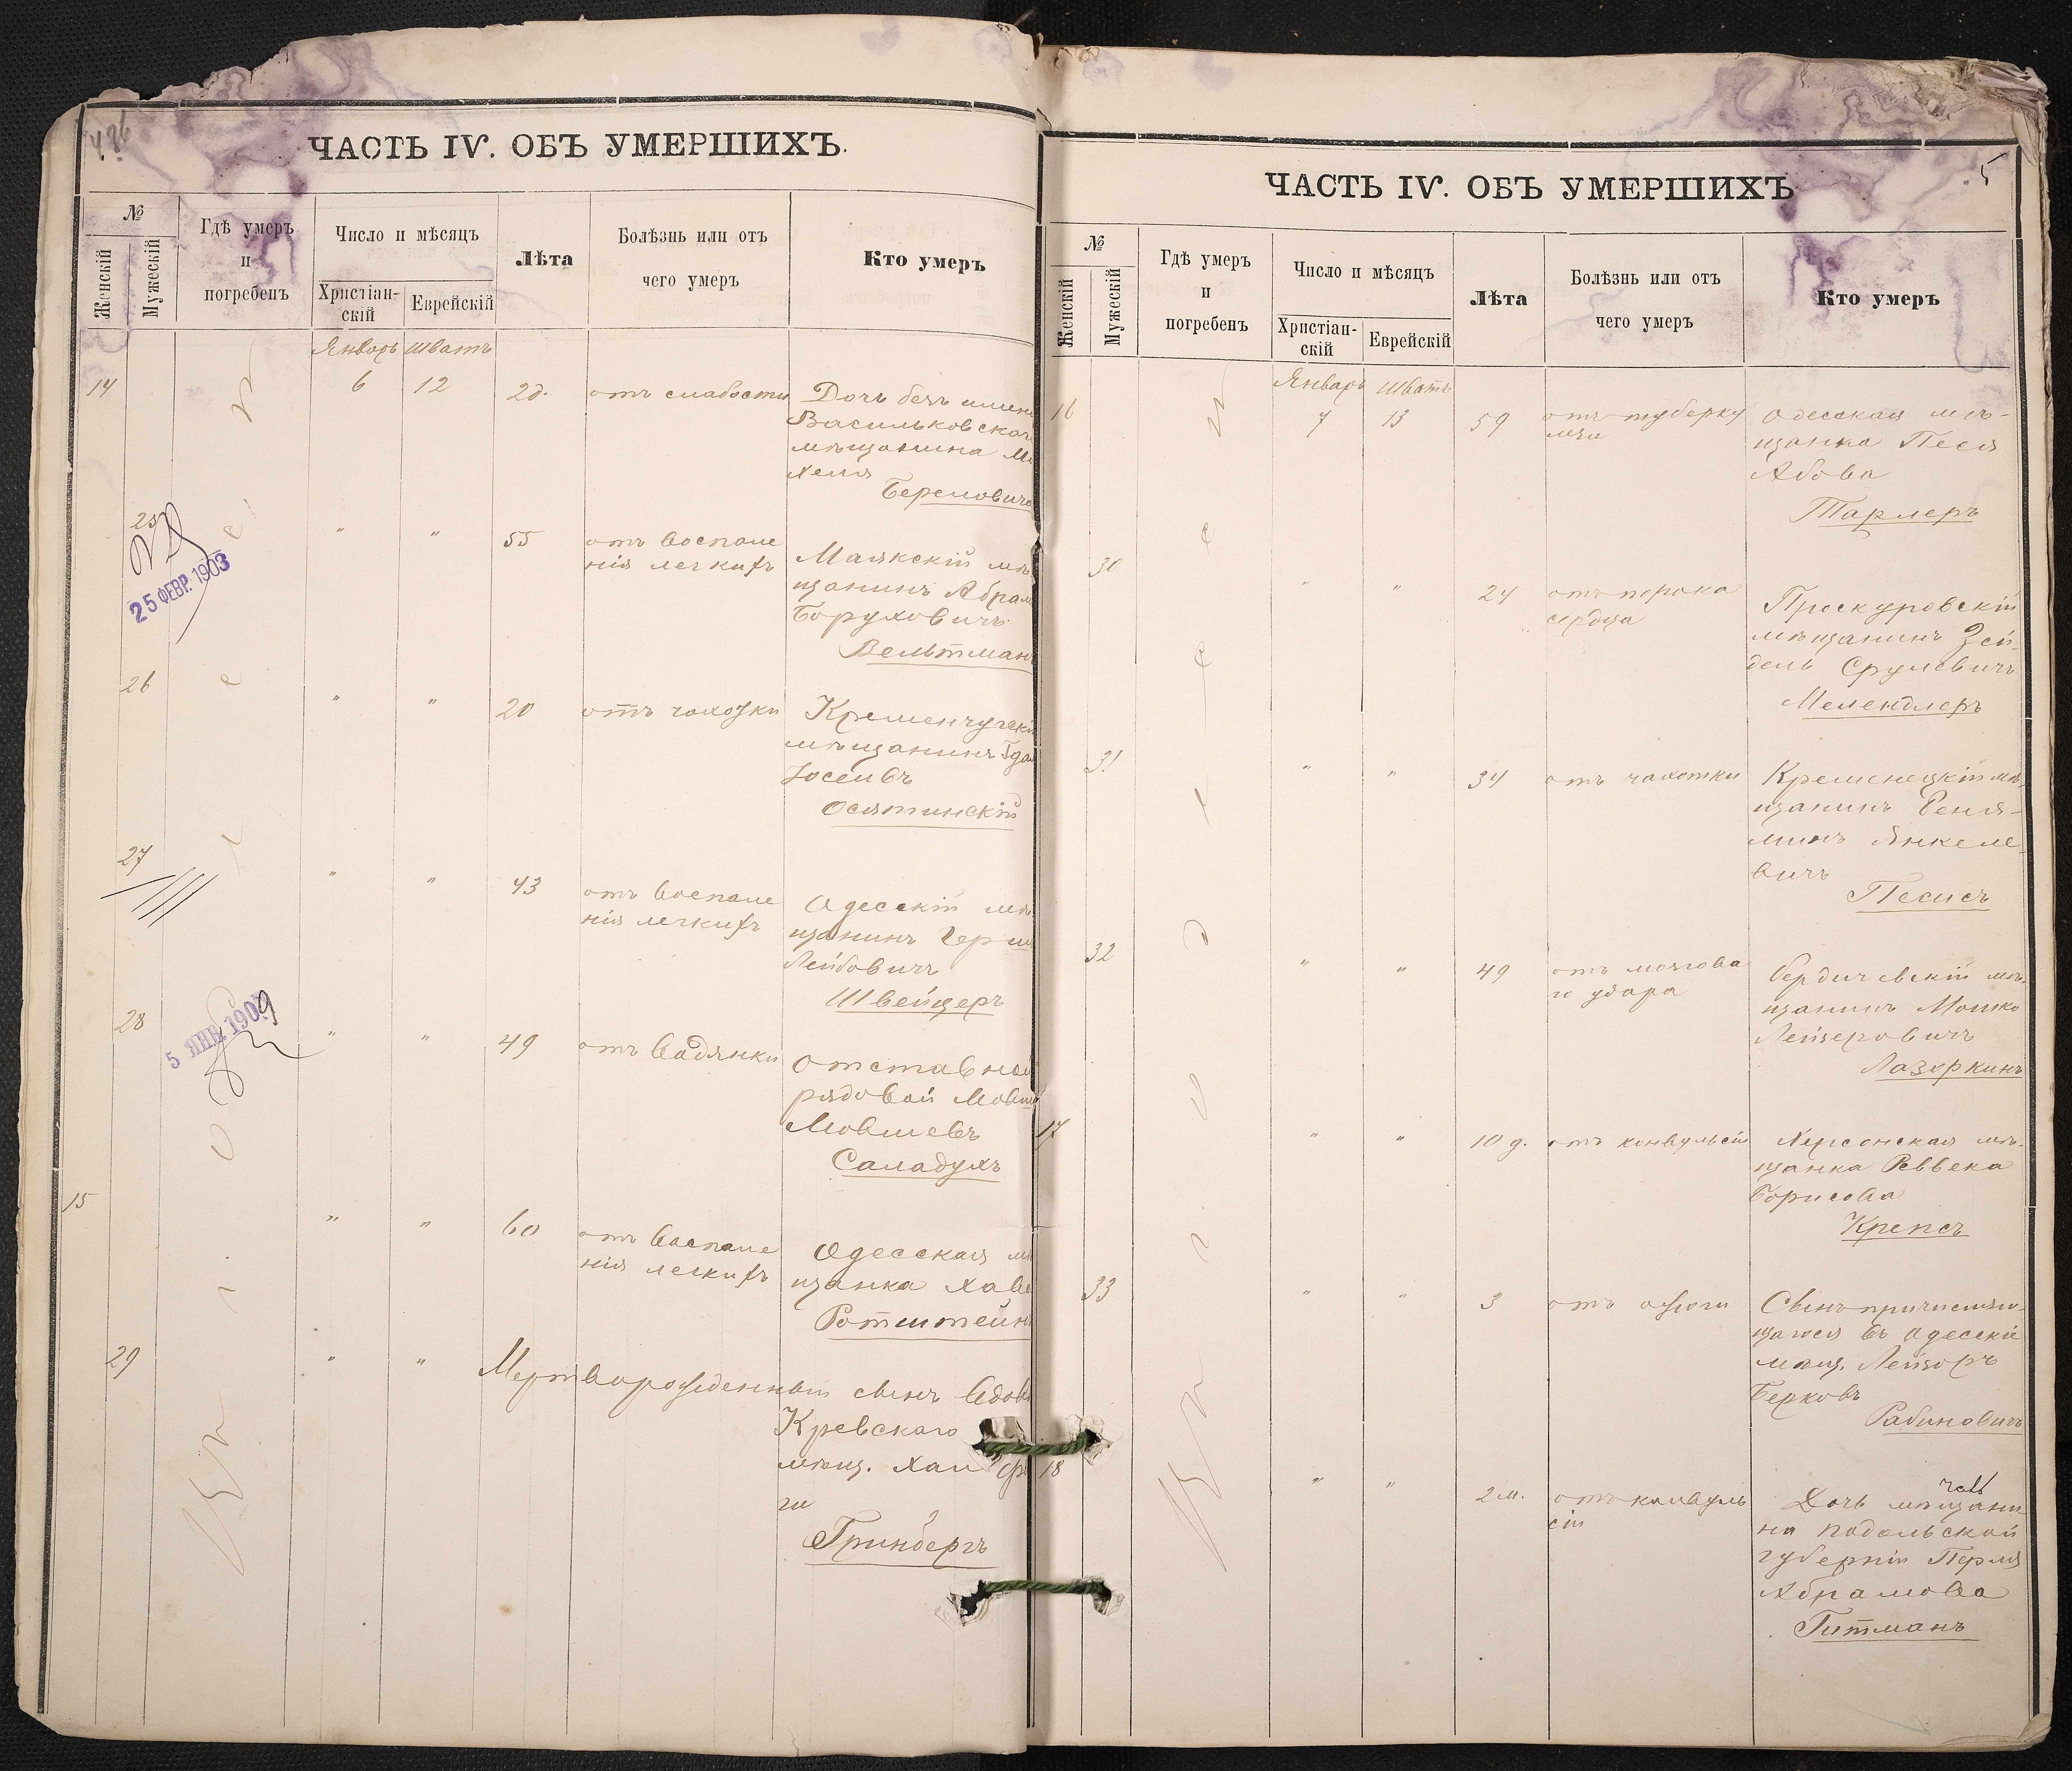 ЧАСТЬ IV. ОБЪ УМЕРШИХЪ.
№
Женскій
Мужескій
Гдѣ умеръ
и
погребенъ
Число и мѣсяцъ
Христіан-
скій
Еврейскій
Лѣта
Болѣзнь или отъ
чего умеръ
Кто умеръ
Январь Шватъ
14 6 12 2д. отъ слабости Дочь безъ имени
Васильковскаго
мѣщанина
хеля
Береловича
25 " " 55 отъ воспале
нія легкихъ
Маякскій мѣ
щанинъ Абрам
Боруховичъ
Вельтман
25 ФЕВР. 1903
26 " " 20 отъ чахотки Кременчугскі
мѣщанинъ
Іосевъ
Осятинскій
27 " " 43 отъ воспале
нія легкихъ
Одесскій мѣ
щанинъ Герш
Лейбовичъ
Швейцеръ
28 " " 49 отъ водянки Отставной
рядовой Мовш
Мовшевъ
Саладухъ
5 ЯНВ. 190
15 " " 60 отъ воспале
нія легкихъ
Одесская мѣ
щанка Хава
Ротштейн
29 " " Мертворожденный сынъ вдовы
Кревскаго
мѣщ. Хаи
Гринбергъ
ЧАСТЬ IV. ОБЪ УМЕРШИХЪ
5
№
Женскій
Мужескій
Гдѣ умеръ
и
погребенъ
Число и мѣсяцъ
Христіан-
скій
Еврейскій
Лѣта
Болѣзнь или отъ
чего умеръ
Кто умеръ
Январь Шватъ
16 7 13 59 отъ туберку
леза
Одесская мѣ-
щанка Песя
Абова
Тарлеръ
30 " " 24 отъ порока
сердца
Проскуровскій
мѣщанинъ Зей-
дель Срулевичъ
Мелендлеръ
31 " " 34 отъ чахотки Кременецкій мѣ-
щанинъ Веня-
минъ Янкеле-
вичъ
Песисъ
32 " " 49 отъ мозгова
го удара
Бердичевскій мѣ-
щанинъ Мошко
Лейзеровичъ
Лазеркинъ
17 " " 10 д. отъ конвульсій Херсонская мѣ-
щанка Реввека
Борисова
Крепсъ
33 " " 3 отъ ожоги Сынъ причисляю-
щагося въ Одесскіе
мѣщ. Лейзоръ
Берковъ
Рабиновичъ
18 " " 2 м. отъ конвуль
сій
Дочь мѣщани-
на Подольской
губерніи Перля
Абрамова
Гитманъ